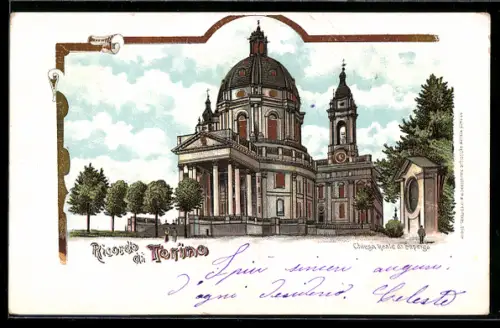 Ricordo
di Torino
Chiesa Reale di Superga
I più sinceri auguri
d'ogni desiderio. Celeste